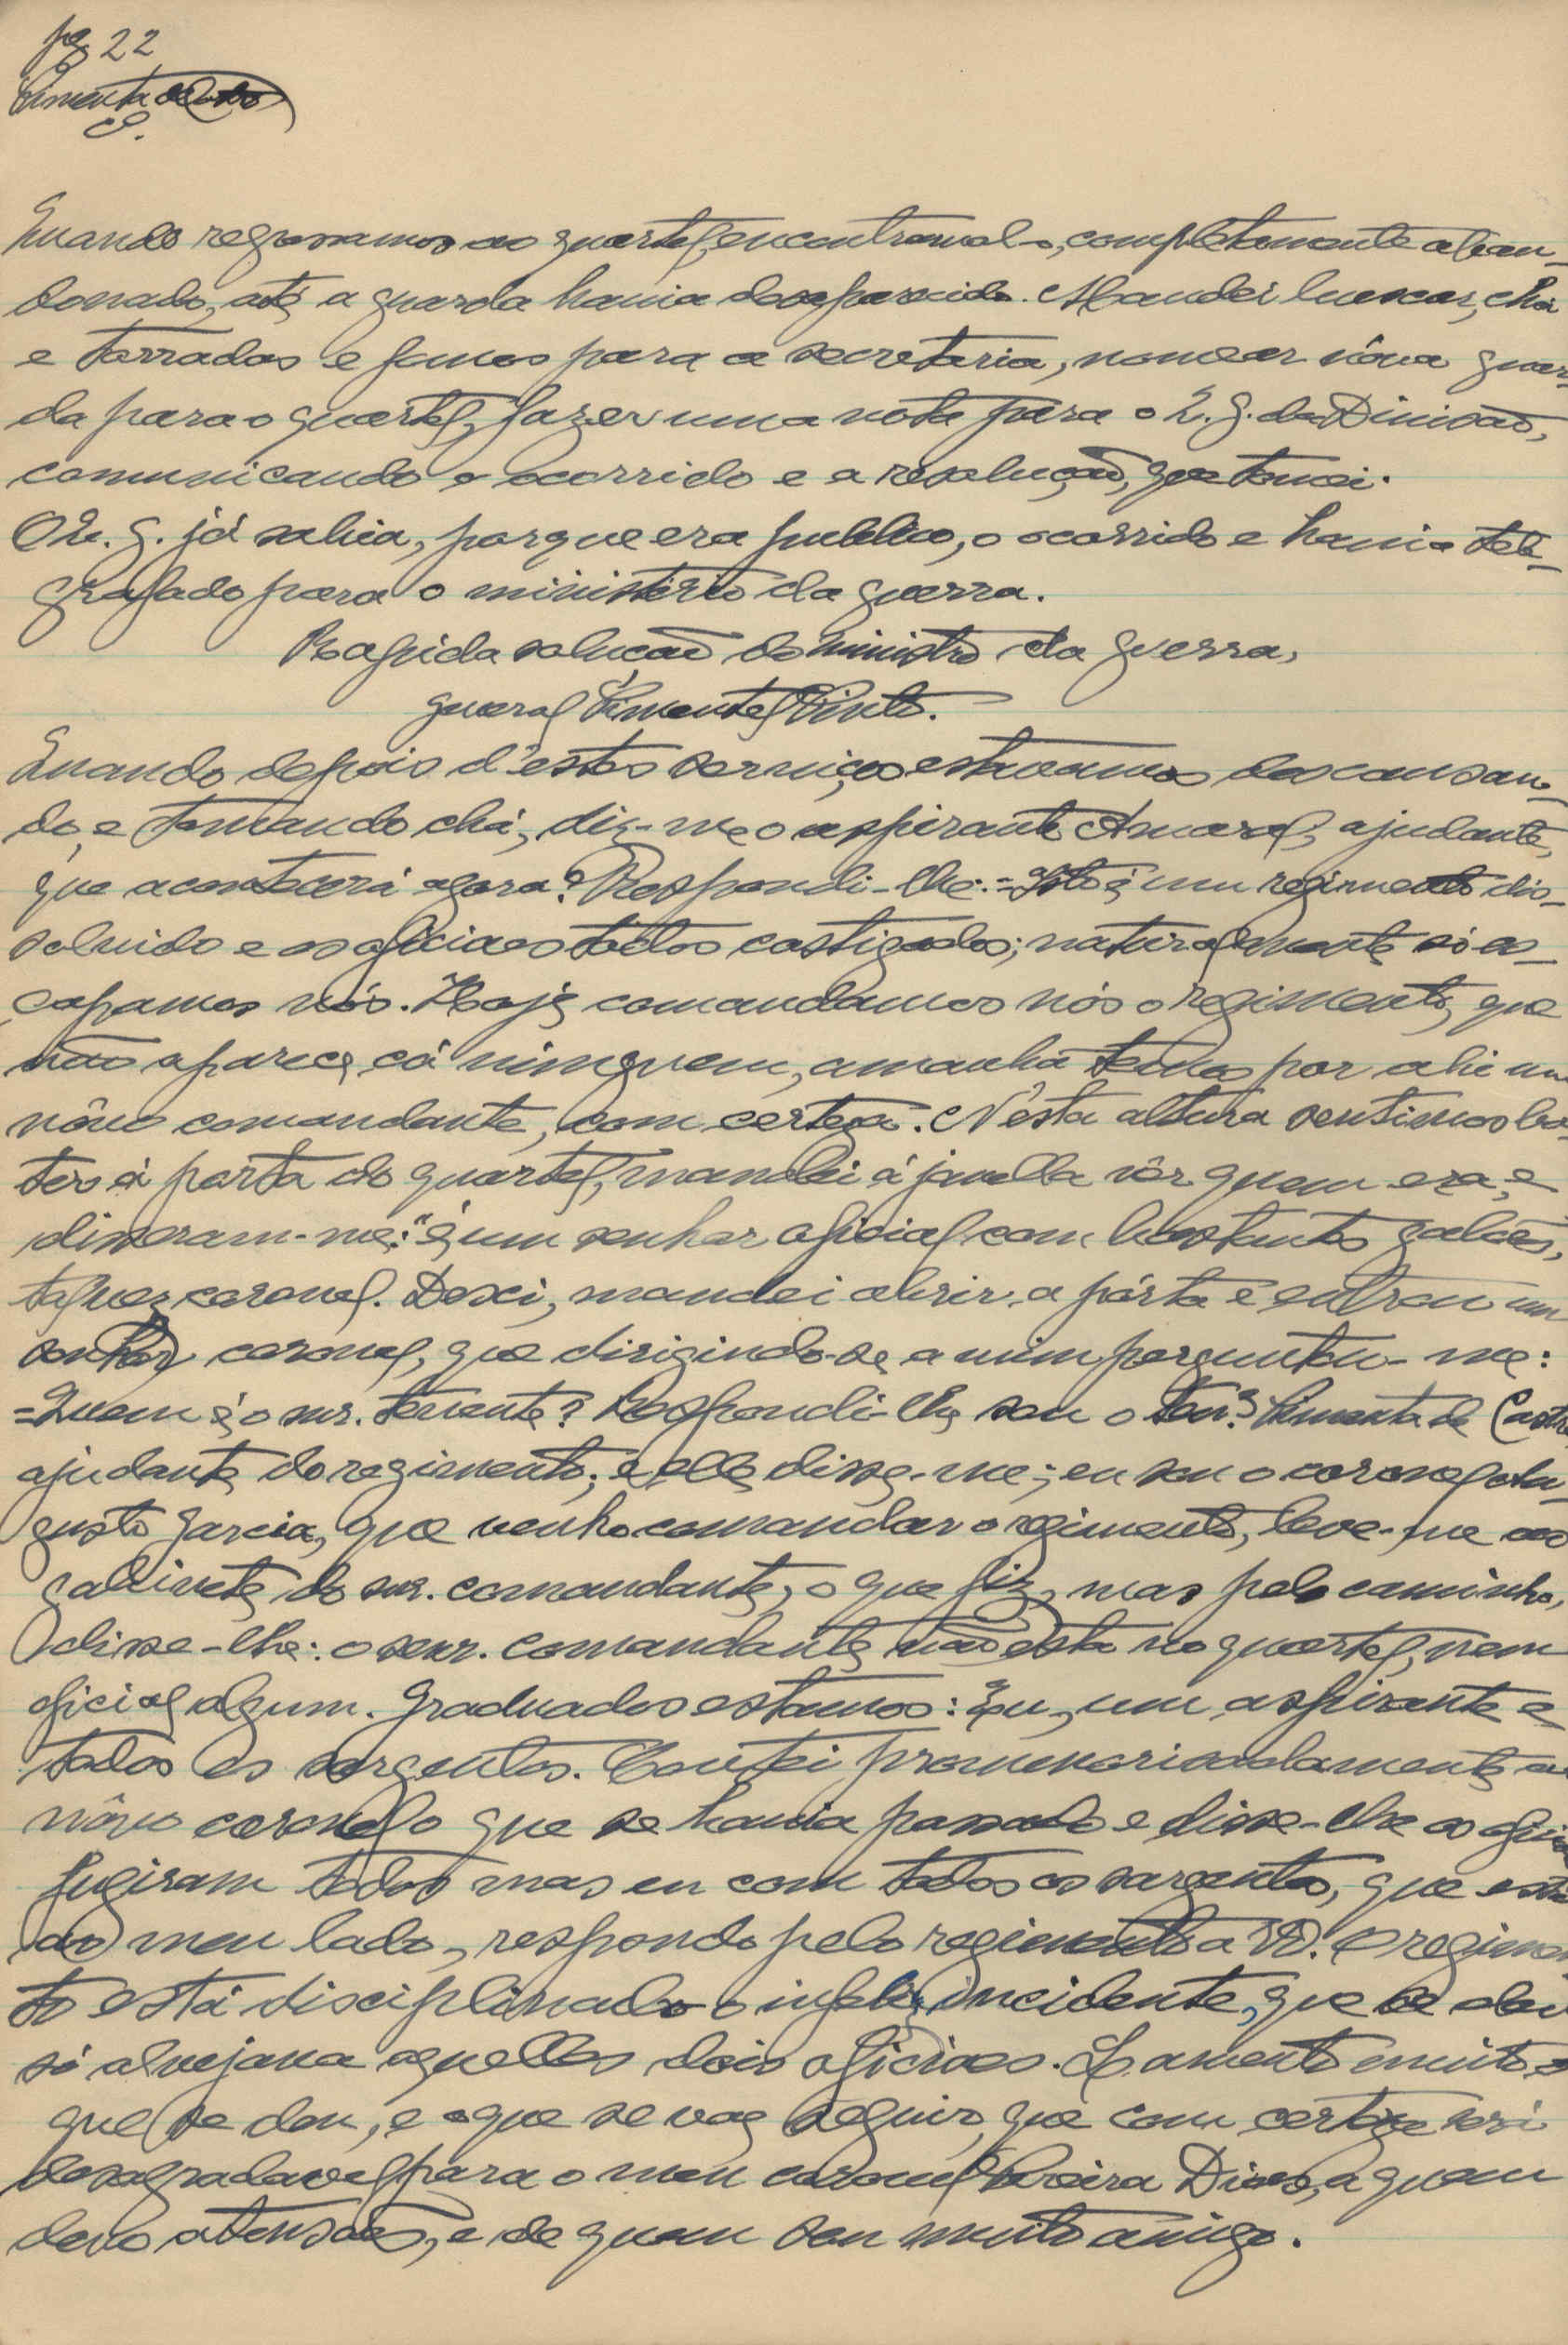 pg 22
Pimenta de Castro
C.
Quando regressamos ao quartel, encontramol-o, completamente aban-
donado, até a guarda havia desaparecido. Mandei buscar, chá
e torradas e fomos para a secretaria, nomear nôva guar-
da para o quartel, fazer uma nota para o Q. G. da Divisão,
comunicando o ocorrido e a resolução, que tomei.
O Q. G. já sabia, porque era publico, o ocorrido e havia tele-
grafado para o ministério da guerra.
Rapida solução do ministro da guerra,
general Pimentel Pinto.
Quando depois d'estes serviços estavamos descansan-
do, e tomando chá, diz-me o aspirante Amaral, ajudante,
que acontecerá agora? Respondi-lhe: = Isto é um regimento dis-
solvido e os oficiaes todos castigados; naturalmente só es-
capamos nós. Hoje comandamos nós o regimento, que
não aparece cá ninguem, amanhã temos por ahi um
nôvo comandante, com certeza. N'esta altura sentimos ba-
ter á porta do quartel, mandei á janella vêr quem era, e
disseram-me: "é um senhor oficial com bastantes galões,
talvez coronel. Desci, mandei abrir, a pórta e entrou um
senhor coronel, que dirigindo-se a mim perguntou-me:
= Quem é o snr. tenente? Respondi-lhe sou o ten.e Pimenta de Castro
ajudante do regimento; e elle disse-me; eu sou o coronel Au-
gusto Garcia, que venho comandar o regimento, leve-me ao
gabinete do snr. comandante, o que fiz, mas pelo caminho,
disse-lhe: o senr. comandante não está no quartel, nem
oficial algum. Graduados estamos: Eu, um aspirante e
todos os sargentos. Contei promenorisadamente ao
nôvo coronel o que se havia passado e disse-lhe os oficiaes
fugiram todos mas eu com todos os sargentos, que estão
ao meu lado, respondo pelo regimento a V. O regimen-
to está disciplinado o infeliz incidente, que se deu
só alvejava aquelles dois oficiaes. Lamento muito o
que se deu, e o que se vae seguir, que com certeza será
desagradavel para o meu coronel Pereira Dias, a quem
devo atensões, e de quem sou muito amigo.